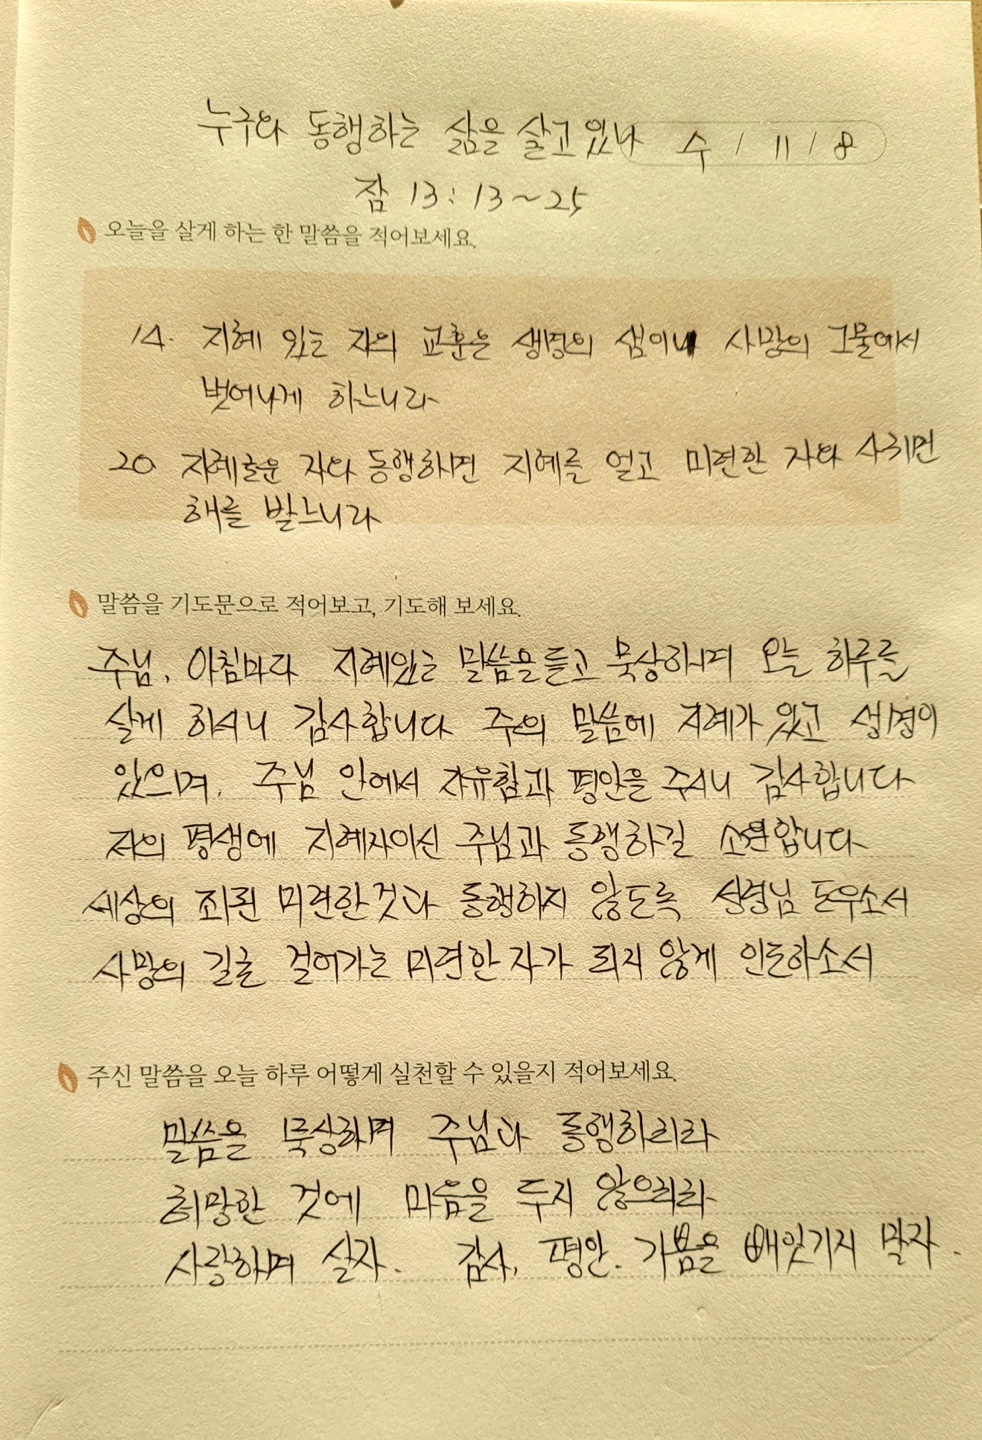 누구와 동행하는 삶을 살고 있나 수 / 11 / 8
잠 13:13~25
오늘을 살게 하는 한 말씀을 적어보세요.
14. 지혜 있는 자의 교훈은 생명의 샘이니 사망의 그물에서
벗어나게 하느니라
20 지혜로운 자와 동행하면 지혜를 얻고 미련한 자와 사귀면
해를 받느니라
말씀을 기도문으로 적어보고, 기도해 보세요.
주님, 아침마다 지혜있는 말씀을 듣고 묵상하며 오늘 하루를
살게 하시니 감사합니다 주의 말씀에 지혜가 있고 생명이
있으며, 주님 안에서 자유함과 평안을 주시니 감사합니다
저의 평생에 지혜자이신 주님과 동행하길 소원합니다
세상의 죄된 미련한 것과 동행하지 않도록 성령님 도우소서
사망의 길을 걸어가는 미련한 자가 되지 않게 인도하소서
주신 말씀을 오늘 하루 어떻게 실천할 수 있을지 적어보세요.
말씀을 묵상하며 주님과 동행하리라
허망한 것에 마음을 두지 않으리라
사랑하며 살자. 감사, 평안. 기쁨을 빼앗기지 말자.